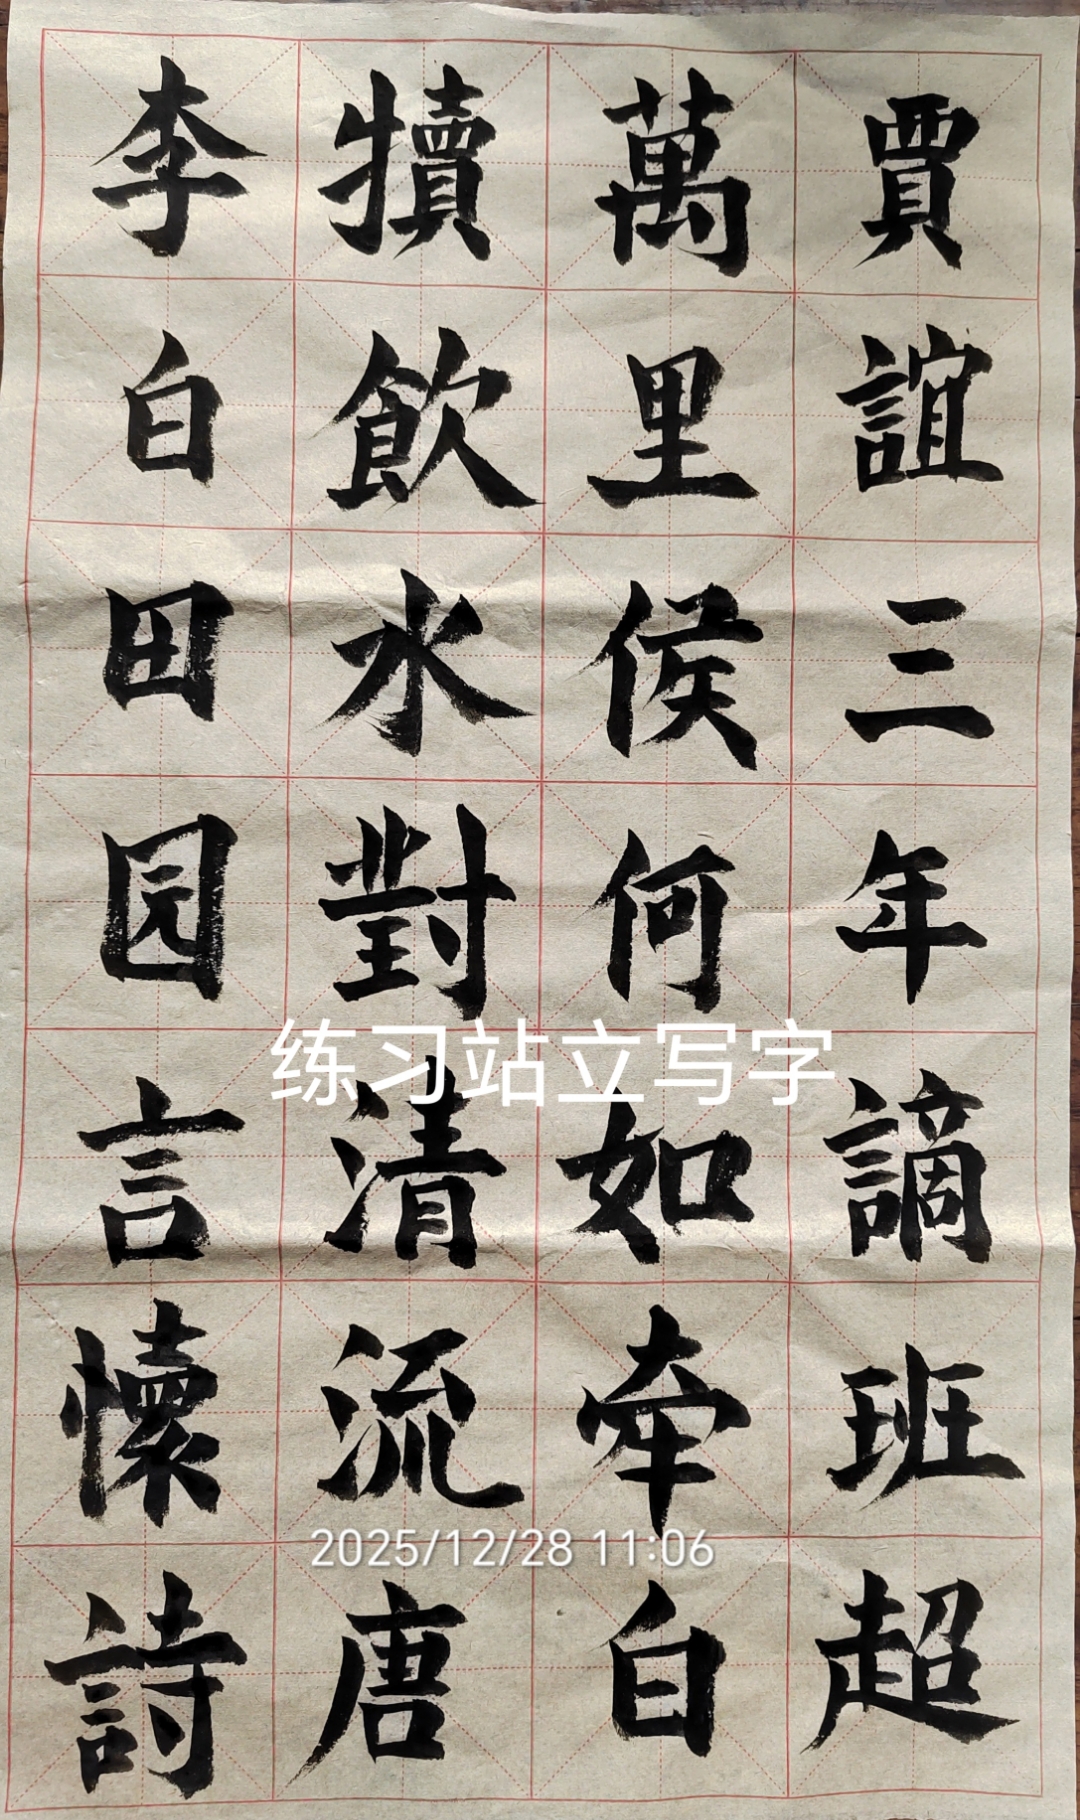 賈誼三年謫班超
萬里侯何如牽白
犢飲水對清流唐
李白田园言懷詩
练习站立写字
2025/12/28 11:06